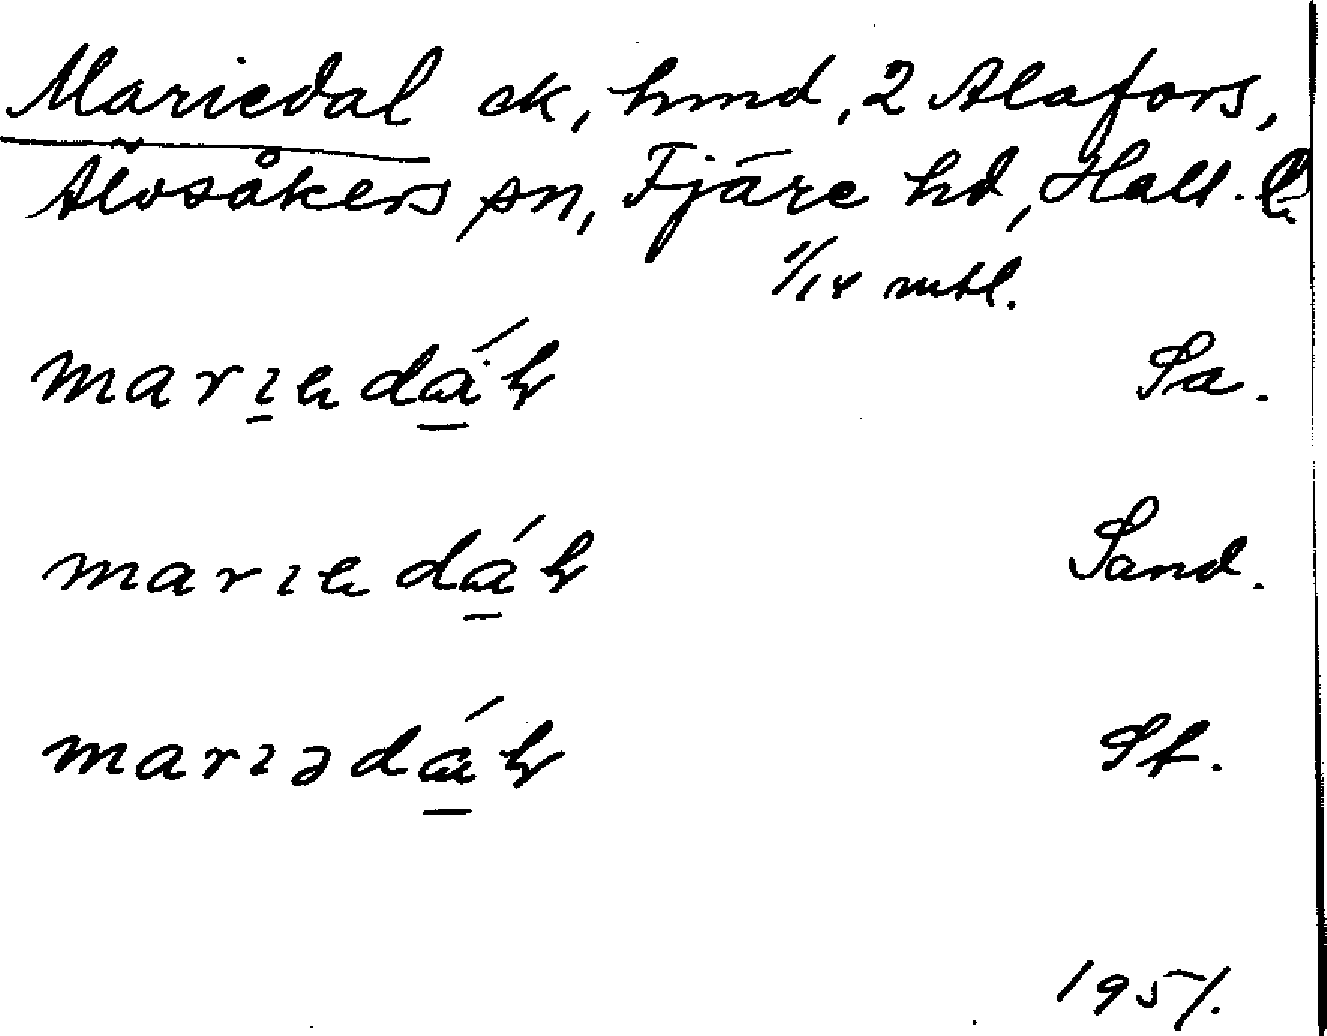 Mariedal ck, hmd, 2 Alafors,
Älvsåkers sn, Fjäre hd, Hall. l.
1/14 mtl.
marıedál Sa.
marıedál Sand.
marıədál St.
1951.